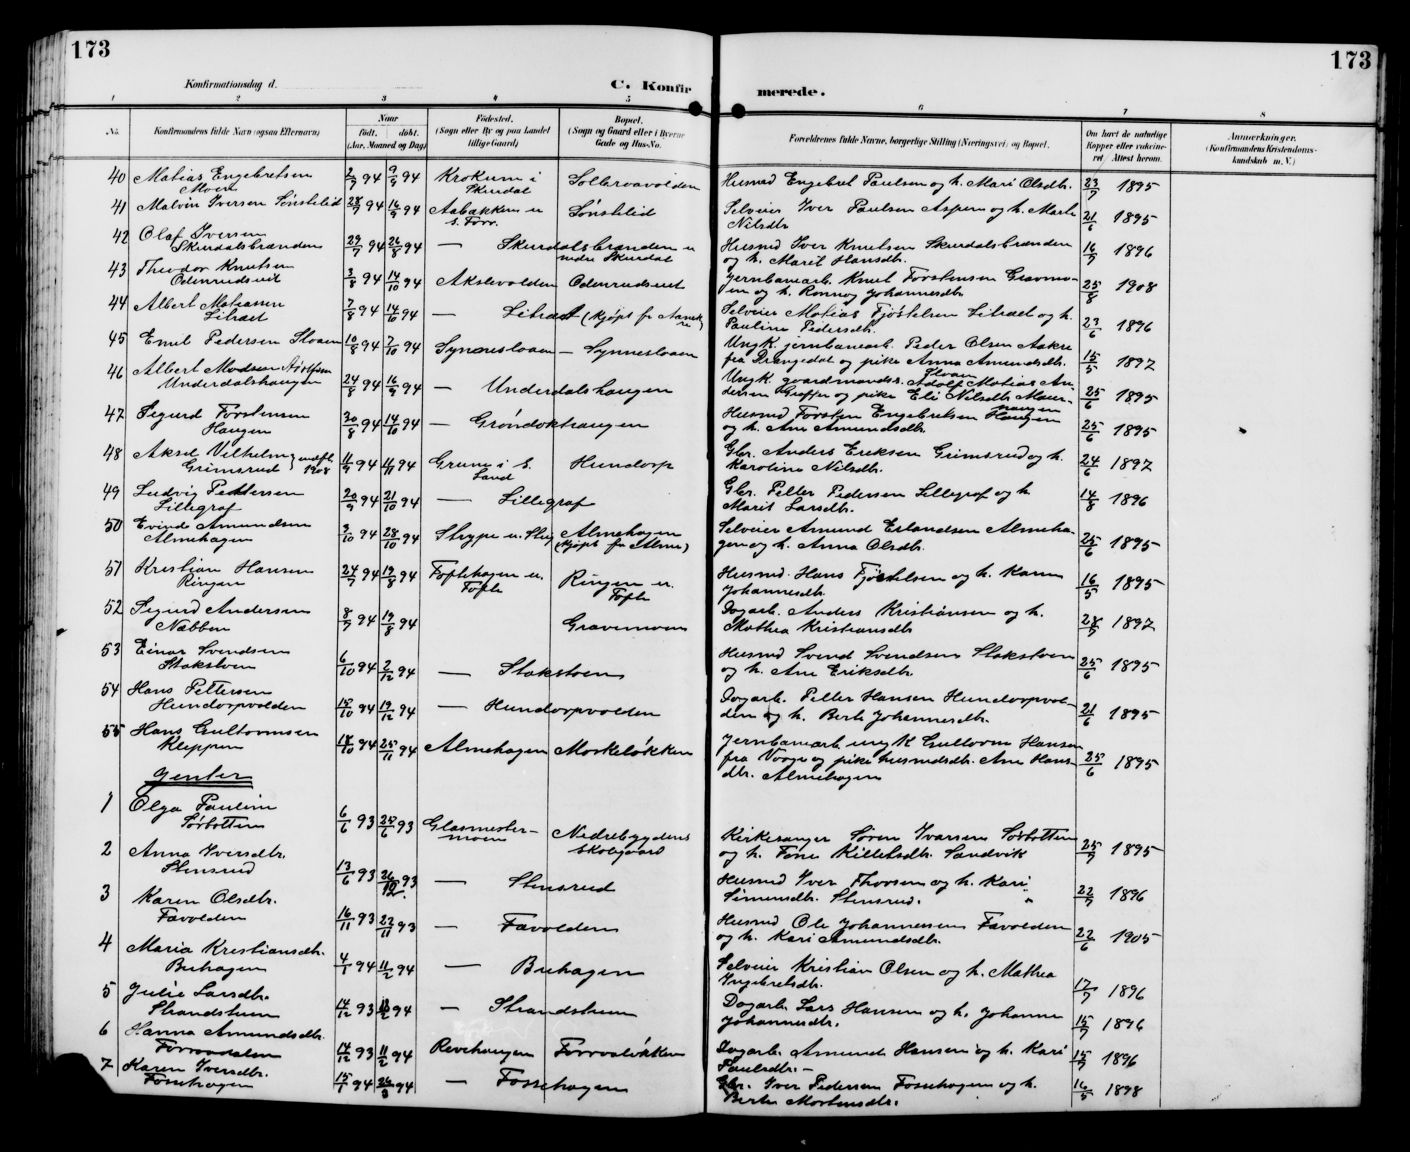 173
173
Konfirmationsdag d.
C. Konfirmerede.
1 2 3 4 5 6 7 8
No.
Konfirmandens fulde Navn (ogsaa Efternavn)
Naar født. døbt. (Aar, Maaned og Dag)
Fødested. (Sogn eller By og paa Landet tillige Gaard)
Bopæl. (Sogn og Gaard eller i Byerne Gade og Hus-No.
Forældrenes fulde Navne, borgerlige Stilling (Næringsvei) og Bopæl.
Om havt de naturlige Kopper eller vakcineret / Attest herom.
Anmærkninger. (Konfirmandens Kristendomskundskab m. V.)
40 Matias Engebretsen Moen 2/7 94 9/9 94 Krokum i Skurdal Solbraavolden Husmd Engebret Paulsen og h. Mari Olsdtr. 23/7 1895
41 Malvin Iversen Sønstelid 28/7 94 16/9 94 Aabakken Sønstelid Selveier Iver Paulsen Aspen og h. Marte Nilsdtr 21/6 1895
42 Olaf Iversen Skurdalsbrænden 29/7 94 26/8 94 — Skurdalsbrænden nedre Skurdal Husmd Iver Knutsen Skurdalsbrænden og h. Marit Hansdtr. 16/7 1896
43 Theodor Knutsen Odenrudseiet 3/8 94 14/10 94 Akslevolden Odenrudseiet Jernbanearb. Knut Torstensen og h. Ronnog Johannesdtr 25/8 1908
44 Albert Matiassen 7/8 94 14/10 94 — Selveier Matias Fjøstelsen og h. Pauline Pedersdtr. 23/6 1896
45 Emil Pedersen Sloaen 10/8 94 7/10 94 Synnesloaen — Synnesloaen Ungk. jernbanearb. Peder Olsen Aakre fra Drangedal og pike Anna Amundsdtr. Sloaen 15/5 1897
46 Albert Madsen Adolfsen Underdalshaugen 24/8 94 16/9 94 — Underdalshaugen Ungk. gaardmandss. Adolf Matias Andersen Graffer og pike Eli Nilsdtr 25/6 1895
47 Sigurd Torstensen Haugen 30/8 94 14/10 94 — Husmd Torsten Engebretsen Haugen og h. Ane Amundsdtr. 25/6 1895
48 Aksel Vilhelm Grimsrud 1908 11/9 94 94 Hundorp Gbr. Anders Eriksen Grimsrud og h. Karoline Nilsdtr. 24/6 1897
49 Ludvig Pettersen Lillegraf 20/9 94 21/10 94 — Lillegraf Gbr. Petter Pedersen Lillegraf og h. Marit Larsdtr. 14/8 1896
50 Evind Amundsen Almehagen 3/10 94 28/10 94 Almehagen (kjøpt fra Alme) Selveier Amund Erlandsen Almehagen og h. Anna Olsdtr. 25/6 1895
51 Kristian Hansen Ringen 24/7 94 19/8 94 Toftehagen u. Tofte Ringen u. Tofte Husmd. Hans Fjøstelsen og h. Karen Johannesdtr. 16/5 1895
52 Sigurd Andersen Næbben 8/7 94 19/8 94 Gravemoen Dagarb. Anders Kristiansen og h. Mathea Kristiansdtr 28/5 1897
53 Einar Svendsen Stokstoen 6/10 94 2/12 94 — Stokstoen Husmd Svend Svendsen Stokstoen og h. Ane Eriksdtr. 25/6 1895
54 Hans Pettersen Hundorpvolden 15/10 94 19/12 94 — Hundorpvolden Dagarb. Petter Hansen Hundorpvolden og h. Berte Johannesdtr. 21/6 1895
55 Hans Guttormsen Kleppen 18/10 94 25/11 94 Almehagen Morkeløkken Jernbanearb. ungk Guttorm Hansen fra Vaage og pike husmdsdtr. Ane Hansdtr. Almehagen 25/6 1895
Jenter
1 Olga Pauline Sørbotten 6/6 93 25/6 93 Glasmestermoen Nedrebygdens Skolegaard Kirkesanger Søren Ivarsen Sørbotten og h. Tone Killetsdtr. Sandvik 25/7 1895
2 Anna Iversdtr. Stensrud 13/6 93 26/12 93 — Stensrud Husmd Iver Thorsen og h. Kari Simensdtr. Stensrud. 22/7 1896
3 Karen Olsdtr. Favolden 16/11 93 22/11 93 — Favolden Husmd Ole Johannessen Favolden og h. Kari Amundsdtr. 22/6 1905
4 Maria Kristiansdtr. Buhagen 4/1 94 11/2 94 — Buhagen Selveier Kristian Olsen og h. Mathea Ingebretsdtr. 17/7 1896
5 Julie Larsdtr. Strandstuen 14/12 93 94 — Strandstuen Dagarb. Lars Hansen og h. Johanne Johannesdtr. 15/7 1896
6 Hanna Amundsdtr. 14/12 93 11/2 94 Revehaugen Dagarb. Amund Hansen og h. Kari Paulsdtr. — 15/7 1896
7 Karen Iversdtr. Fossehagen 15/1 94 26/3 94 — Fossehagen Gbr. Iver Pedersen Fossehagen og h. Berte Mortensdtr. 16/5 1898